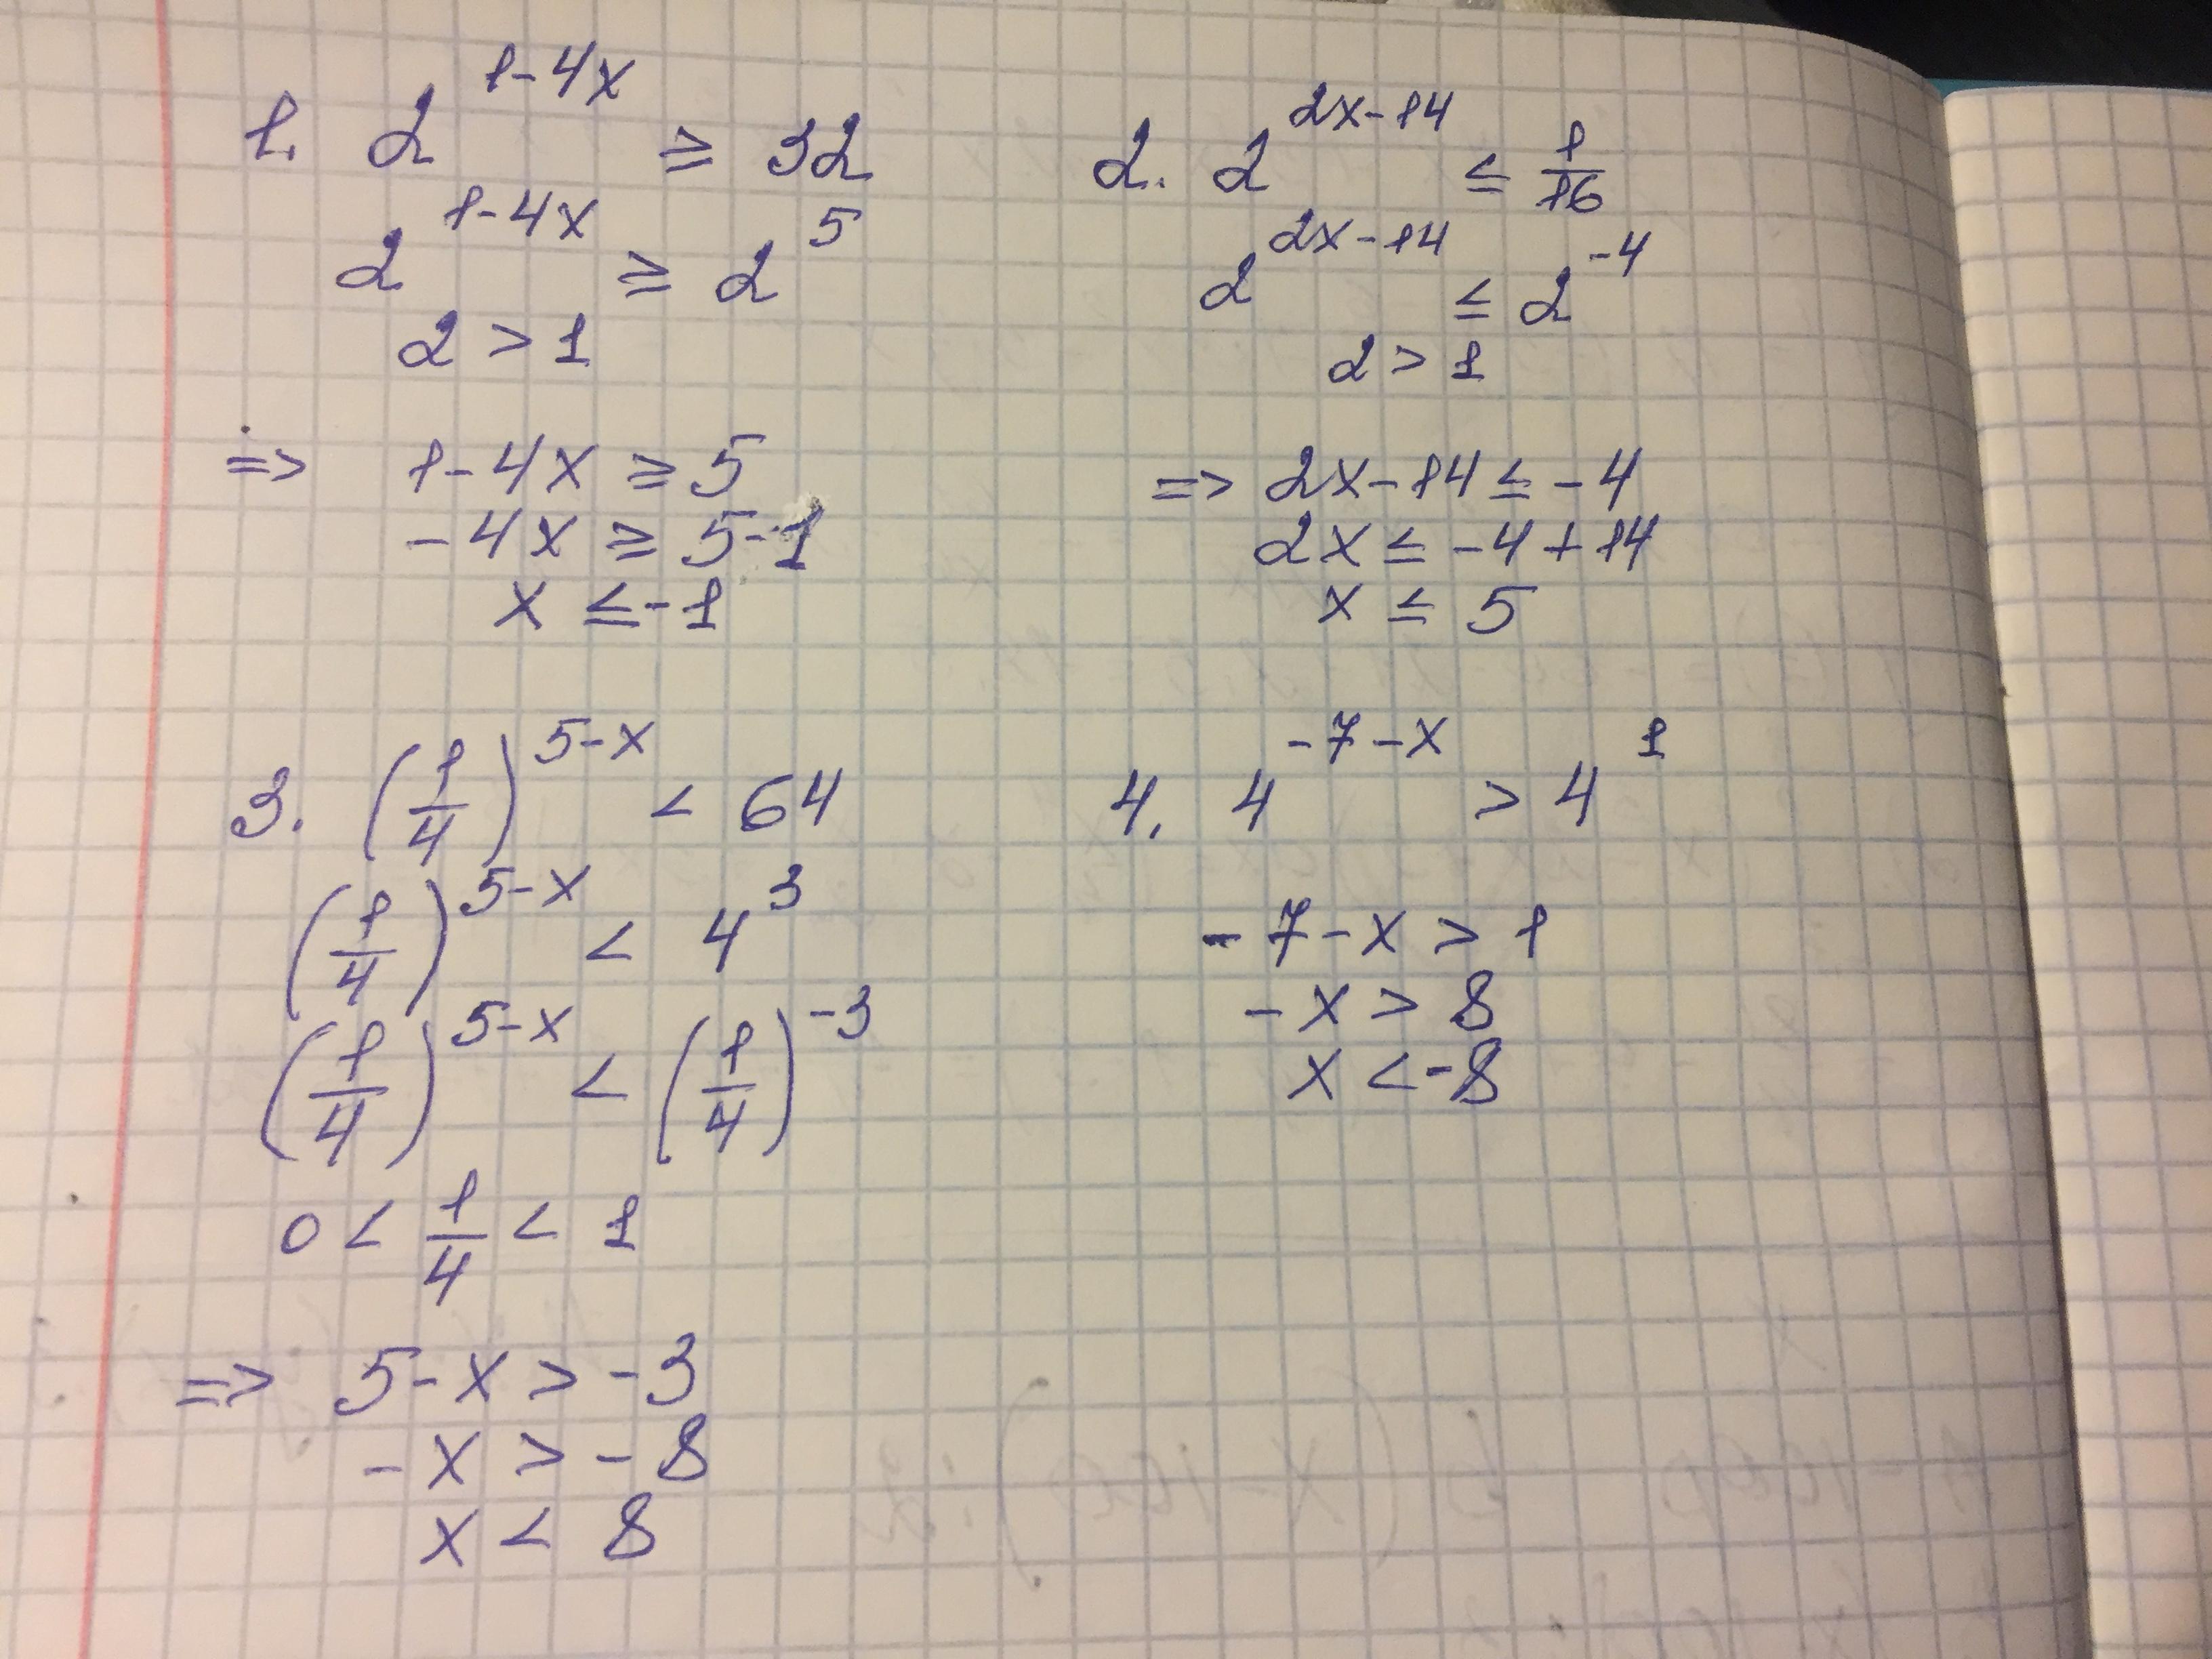 1. 2^{1-4x} ≥ 32
2^{1-4x} ≥ 2^5
2 > 1
=> 1-4x ≥ 5
-4x ≥ 5-1
x ≤ -1
2. 2^{2x-14} ≤ 1/16
2^{2x-14} ≤ 2^{-4}
2 > 1
=> 2x-14 ≤ -4
2x ≤ -4+14
x ≤ 5
3. (1/4)^{5-x} < 64
(1/4)^{5-x} < 4^3
(1/4)^{5-x} < (1/4)^{-3}
0 < 1/4 < 1
=> 5-x > -3
-x > -8
x < 8
4. 4^{-7-x} > 4^1
-7-x > 1
-x > 8
x < -8